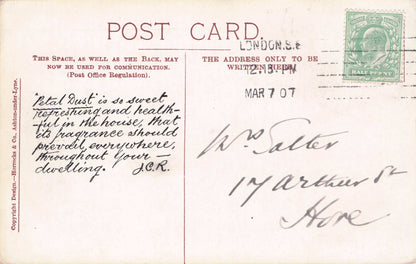 POST CARD.
THIS SPACE, AS WELL AS THE BACK, MAY
NOW BE USED FOR COMMUNICATION.
(Post Office Regulation).
THE ADDRESS ONLY TO BE
WRITTEN HERE.
LONDON. S.E
12.15 PM
MAR 7 07
HALF PENNY
"Petal Dust" is so sweet
refreshing and health-
ful in the house, that
its fragrance should
prevail everywhere,
throughout your
dwelling. J.C.R.
Mrs Salter
17 Arthur St
Hove
Copyright Design.—Horrocks & Co., Ashton-under-Lyne.